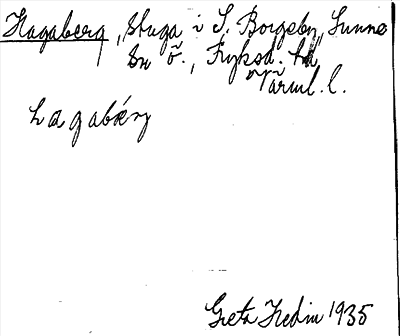 Hagaberg, Stuga i S. Borgeby, Sunne
sn ö., Fryksd. hd
Värml. l.
hagabærj
Greta Hedin 1935